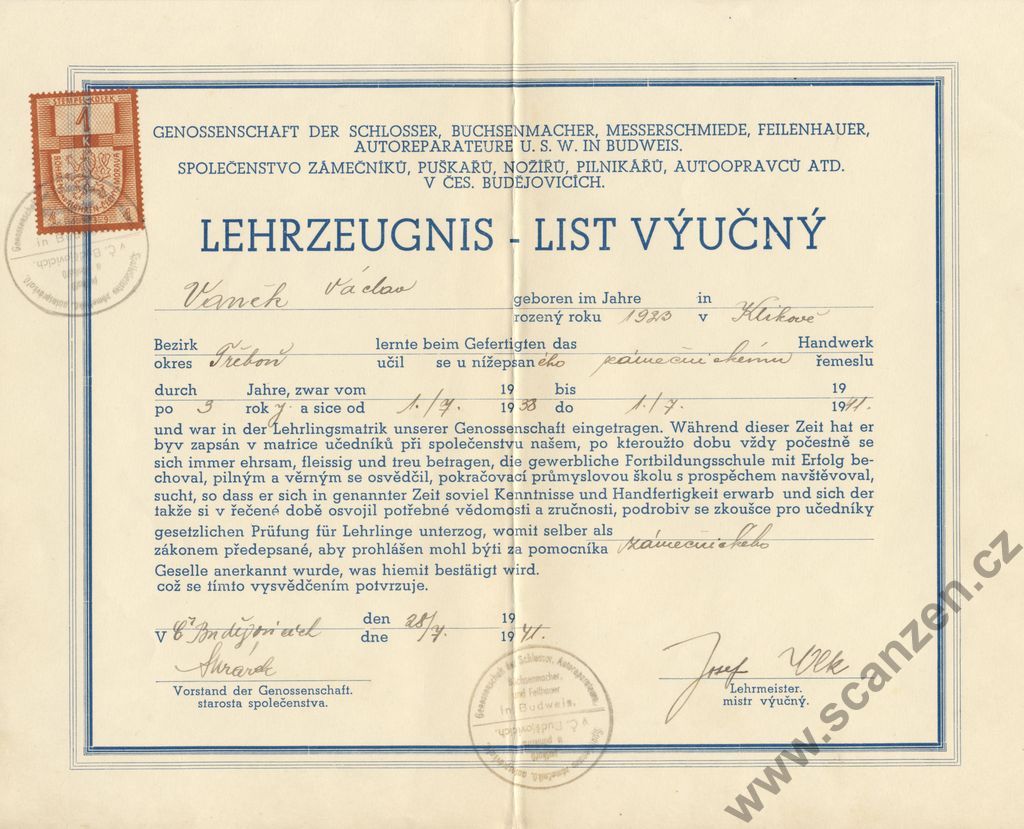 STEMPELMARKE
1
K
GENOSSENSCHAFT DER SCHLOSSER, BUCHSENMACHER, MESSERSCHMIEDE, FEILENHAUER,
AUTOREPARATEURE U. S. W. IN BUDWEIS.
SPOLEČENSTVO ZÁMEČNÍKŮ, PUŠKAŘŮ, NOŽÍŘŮ, PILNIKÁŘŮ, AUTOOPRAVCŮ ATD.
V ČES. BUDĚJOVICÍCH.
LEHRZEUGNIS - LIST VÝUČNÝ
Vaněk Václav
geboren im Jahre in
rozený roku 1923 v Klikově
Bezirk lernte beim Gefertigten das Handwerk
okres Třeboň učil se u nížepsaného zámečnickému řemeslu
durch Jahre, zwar vom 19 bis 19
po 3 rok y a sice od 1./7. 1938 do 1./7. 1941.
und war in der Lehrlingsmatrik unserer Genossenschaft eingetragen. Während dieser Zeit hat er
byv zapsán v matrice učedníků při společenstvu našem, po kteroužto dobu vždy počestně se
sich immer ehrsam, fleissig und treu betragen, die gewerbliche Fortbildungsschule mit Erfolg be-
choval, pilným a věrným se osvědčil, pokračovací průmyslovou školu s prospěchem navštěvoval,
sucht, so dass er sich in genannter Zeit soviel Kenntnisse und Handfertigkeit erwarb und sich der
takže si v řečené době osvojil potřebné vědomosti a zručnosti, podrobiv se zkoušce pro učedníky
gesetzlichen Prüfung für Lehrlinge unterzog, womit selber als
zákonem předepsané, aby prohlášen mohl býti za pomocníka zámečnického
Geselle anerkannt wurde, was hiemit bestätigt wird.
což se tímto vysvědčením potvrzuje.
den 19
V Č. Budějovicích dne 28/7. 1941.
Vorstand der Genossenschaft.
starosta společenstva.
Josef Vlk
Lehrmeister.
mistr výučný.
Büchsenmacher,
und Feilhauer
in Budweis.
v Č. Budějovicích.
www.scanzen.cz